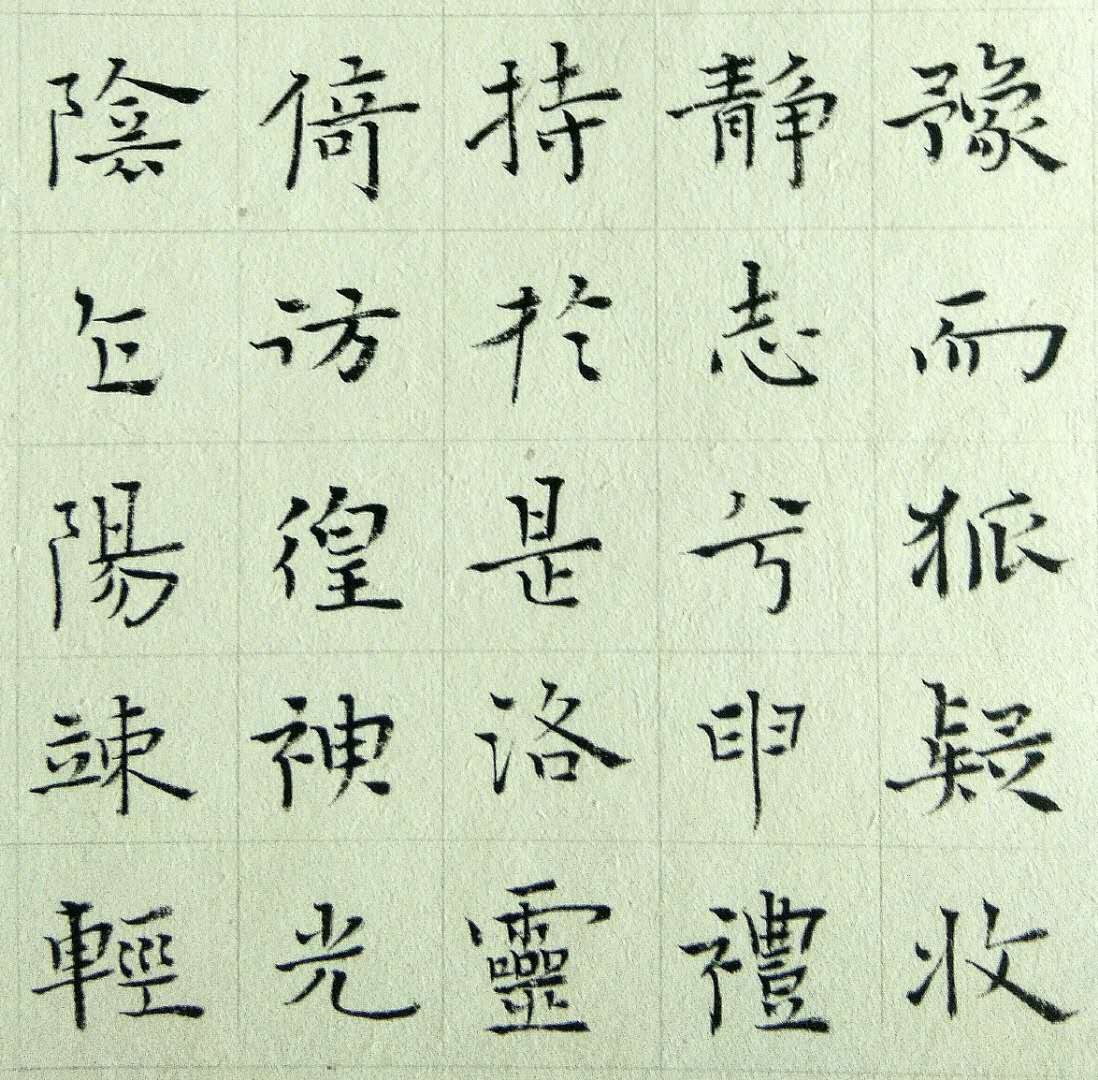 豫而狐疑收
静志兮申禮
持於是洛靈
倚彷徨神光
陰乍陽竦輕